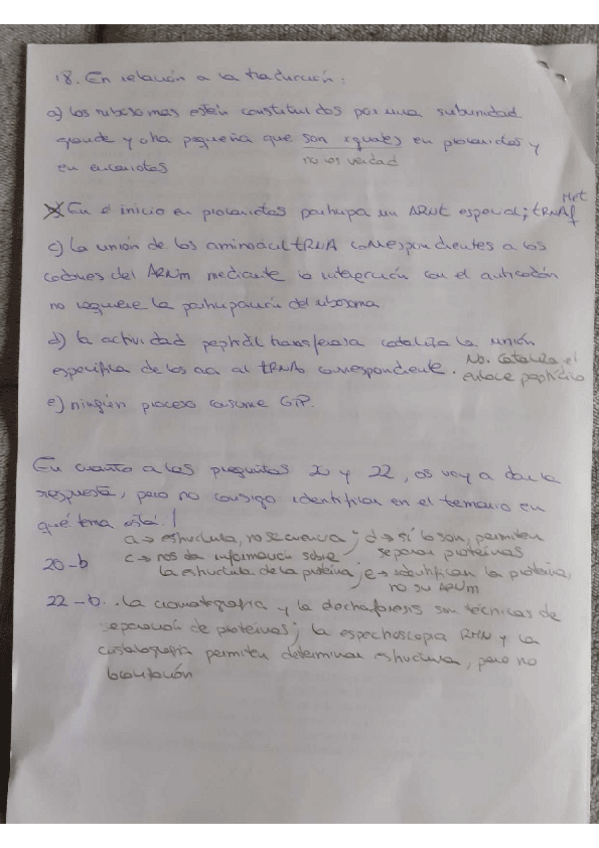 18. En relación a la traducción:
a) los ribosomas están constituidos por una subunidad
grande y otra pequeña que son iguales en procariotas y
no es verdad
en eucariotas
Met
b) En el inicio en procariotas participa un ARNt especial; tRNAf
c) la unión de los aminoacil tRNA correspondientes a los
codones del ARNm mediante la interacción con el anticodón
no requiere la participación del ribosoma
d) la actividad peptidil transferasa cataliza la unión
específica de los aa al tRNA correspondiente. No. Cataliza el
enlace peptídico
e) ningún proceso consume GTP.
En cuanto a las preguntas 20 y 22, os voy a dar la
respuesta, pero no consigo identificar en el temario en
qué tema está!
a → estructura, no secuencia; d → sí lo son, permiten
20-b c → nos da información sobre separar proteínas
la estructura de la proteína; e → identifican la proteína,
no su ARNm
22-b. La cromatografía y la electroforesis son técnicas de
separación de proteínas; la espectroscopia RMN y la
cristalografía permiten determinar estructura, pero no